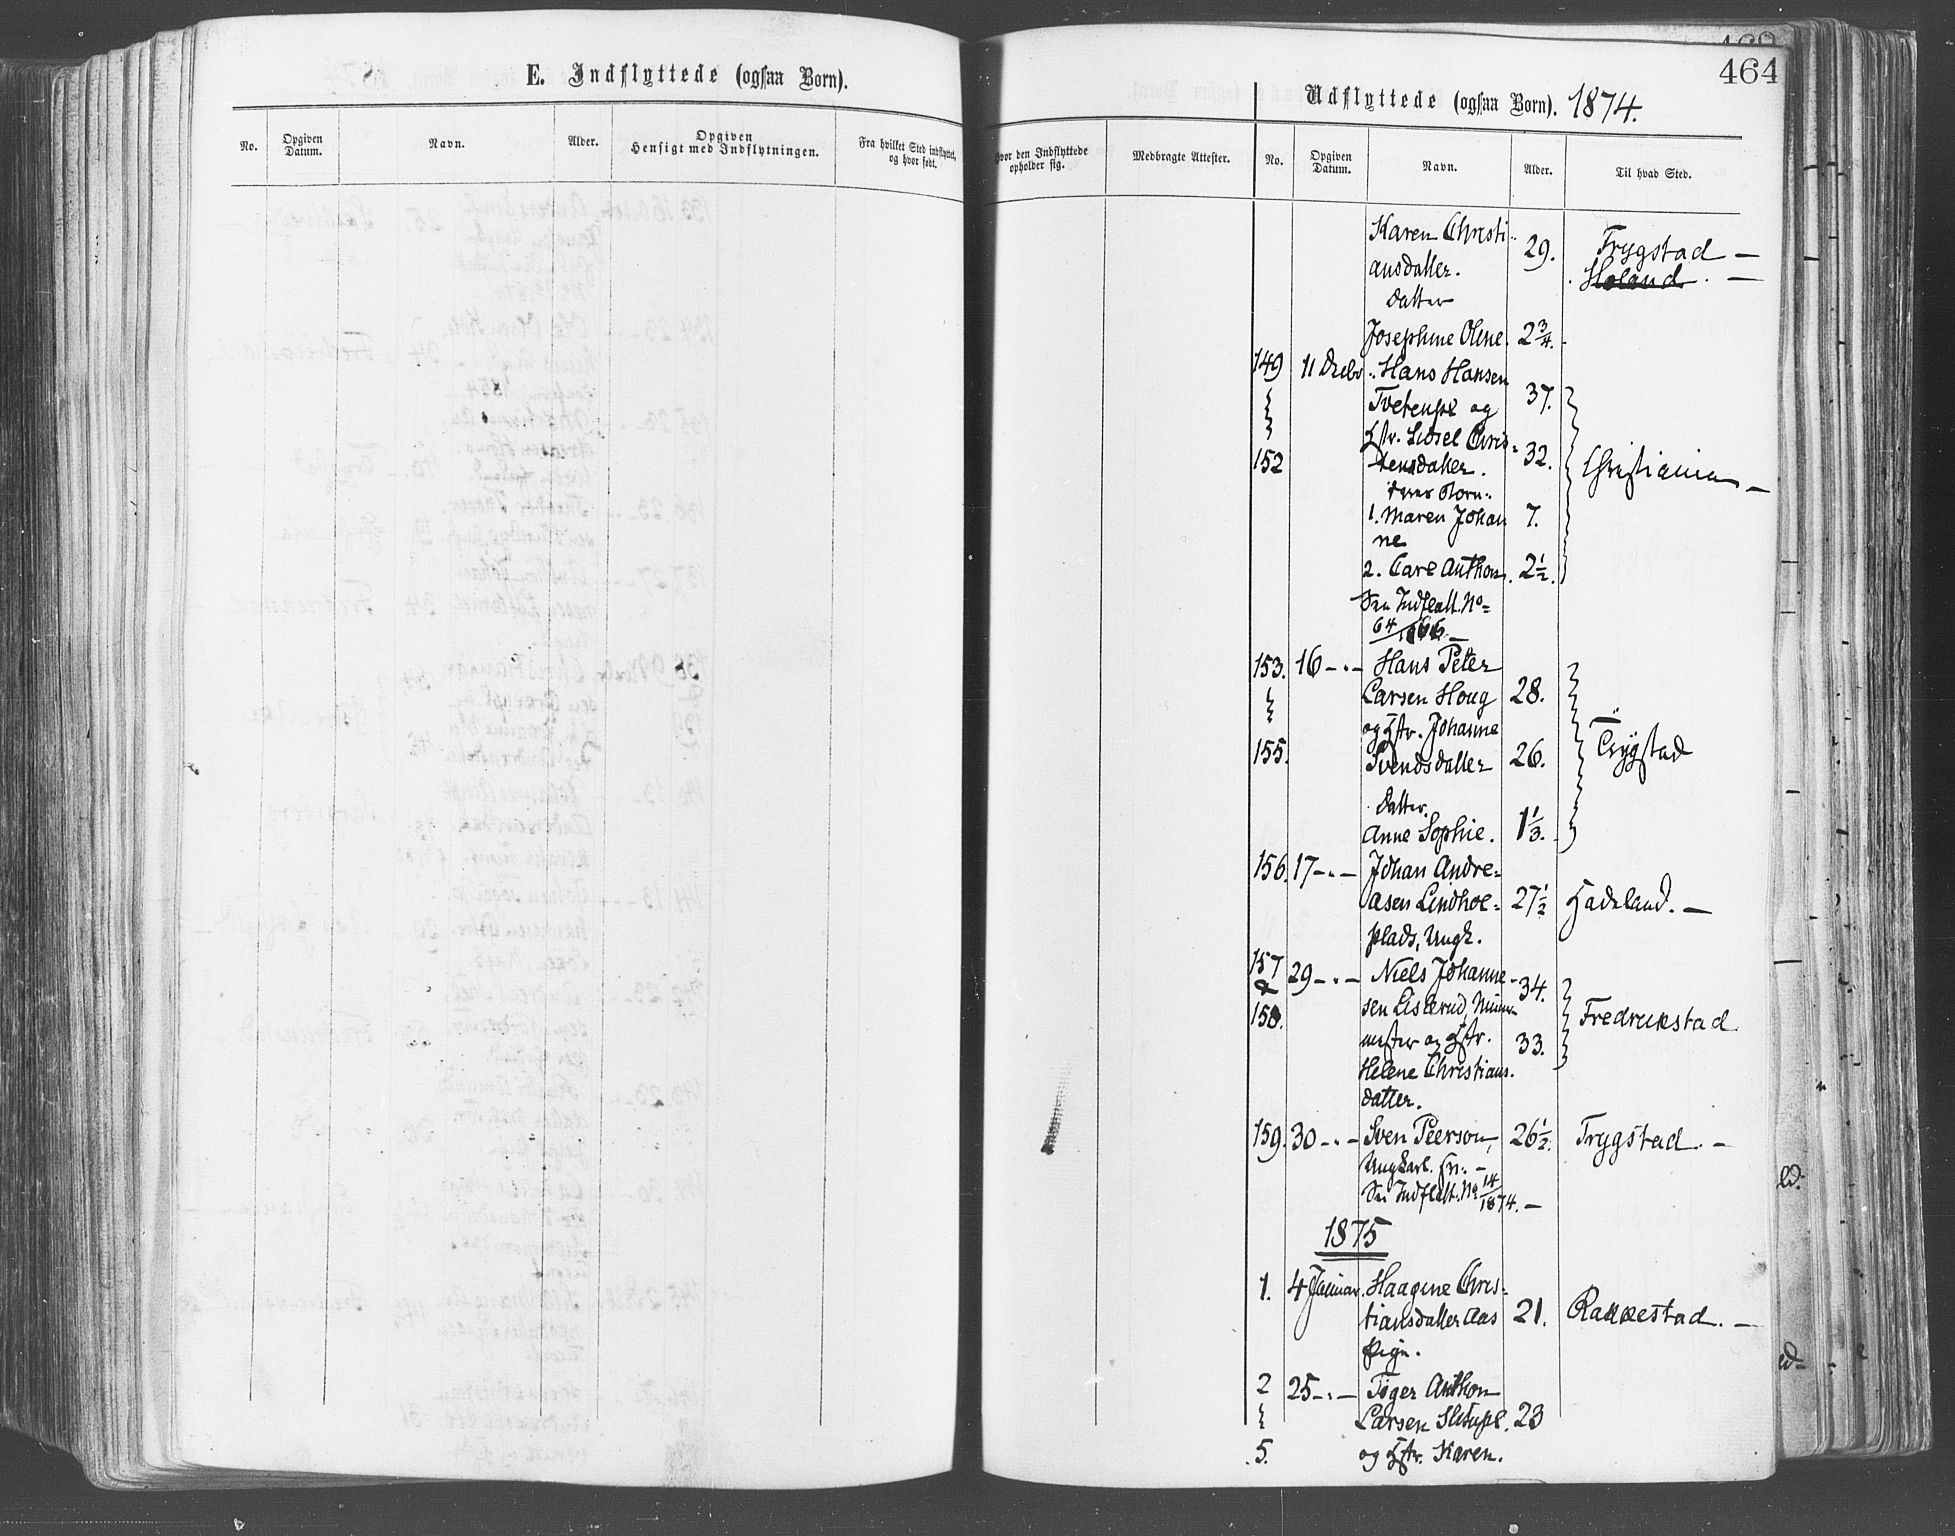 464
E. Indflyttede (ogsaa Børn).
No.
Opgiven Datum.
Navn.
Alder.
Opgiven Hensigt med Indflytningen.
Fra hvilket Sted indflyttet, og hvor født.
Hvor den Indflyttede opholder sig.
Medbragte Attester.
Udflyttede (ogsaa Børn). 1874.
No.
Opgiven Datum.
Navn.
Alder.
Til hvad Sted.
Karen Christi- 29. Trygstad —
ansdatter. Høland. —
Datter
Josephine Olene 2 3/4.
149 11 Decbr. Hans Hansen
Tvetenpl og 37.
Hstr. Lidsel Chris-
152 tensdatter. 32. Christiania —
deres Børn:
1. Maren Johan 7.
ne
2. Carl Anthon. 2 1/2.
Indflatt. No
64/1866. —
153. 16 -"- Hans Peter
Larsen Houg 28.
og Hstr. Johanne
155. Svendsdatter 26. Trygstad
Datter.
Anne Sophie. 1 1/3.
156. 17 -"- Johan Andre-
asen Lindhol- 27 1/2 Hadeland. —
plads, Ungk.
157 29 -"- Niels Johanne-
& 34.
158. sen Listerud, Fredrikstad
mester og Hstr. 33.
Helene Christians.
datter.
159. 30 -"- Sven Peerson, 26 1/2. Trygstad. —
Ungkarl.
Indflatt. No 14/1874. —
1875
1. 4 Januar. Haagine Chris-
tiansdatter Aas 21. Rakkestad. —
Pige.
2 25 -"- Tøger Anthon
Larsen 23
5. og Hstr. Karen.